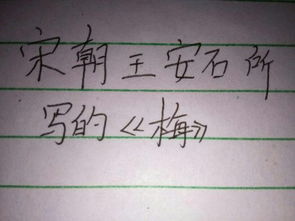 宋朝王安石所
写的《梅》